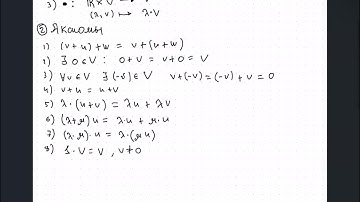 3) • : K × V → V
(λ, v) ↦ λ • v
② Аксиомы
1) (v + u) + w = v + (u + w)
2) ∃ 0 ∈ V : 0 + v = v + 0 = V
3) ∀ v ∈ V ∃ (-v) ∈ V v + (-v) = (-v) + v = 0
4) v + u = u + v
5) λ • (u + v) = λu + λv
6) (λ + μ) u = λ • u + μ • u
7) (λ • μ) • u = λ • (μ u)
8) 1 • V = V , v ≠ 0